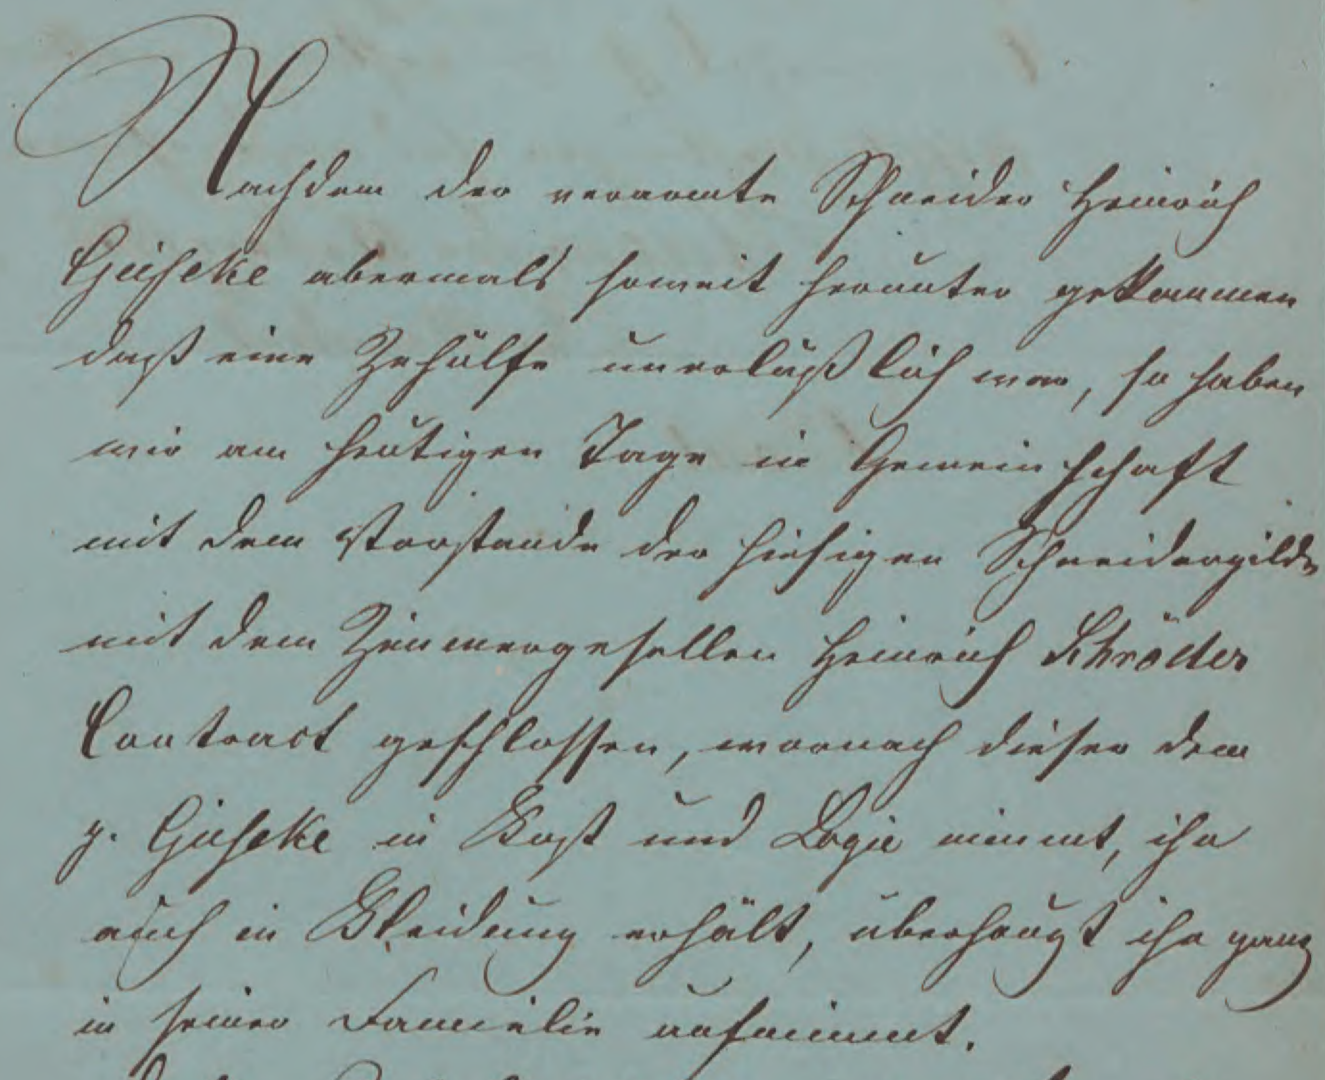 Nachdem der verarmte Schneider Heinrich
Gieseke abermals soweit herunter gekommen
daß eine Zuhülfe unerläßlich war, so haben
wir am heutigen Tage in Gemeinschaft
mit dem Vorstande der hiesigen Schneidergilde
mit dem Zimmergesellen Heinrich Schröder
Contract geschlossen, wornach dieser dem
p. Gieseke in Kost und Logie nimmt, ihn
auch in Kleidung erhält, überhaupt ihn ganz
in seiner Famielie aufnimmt.